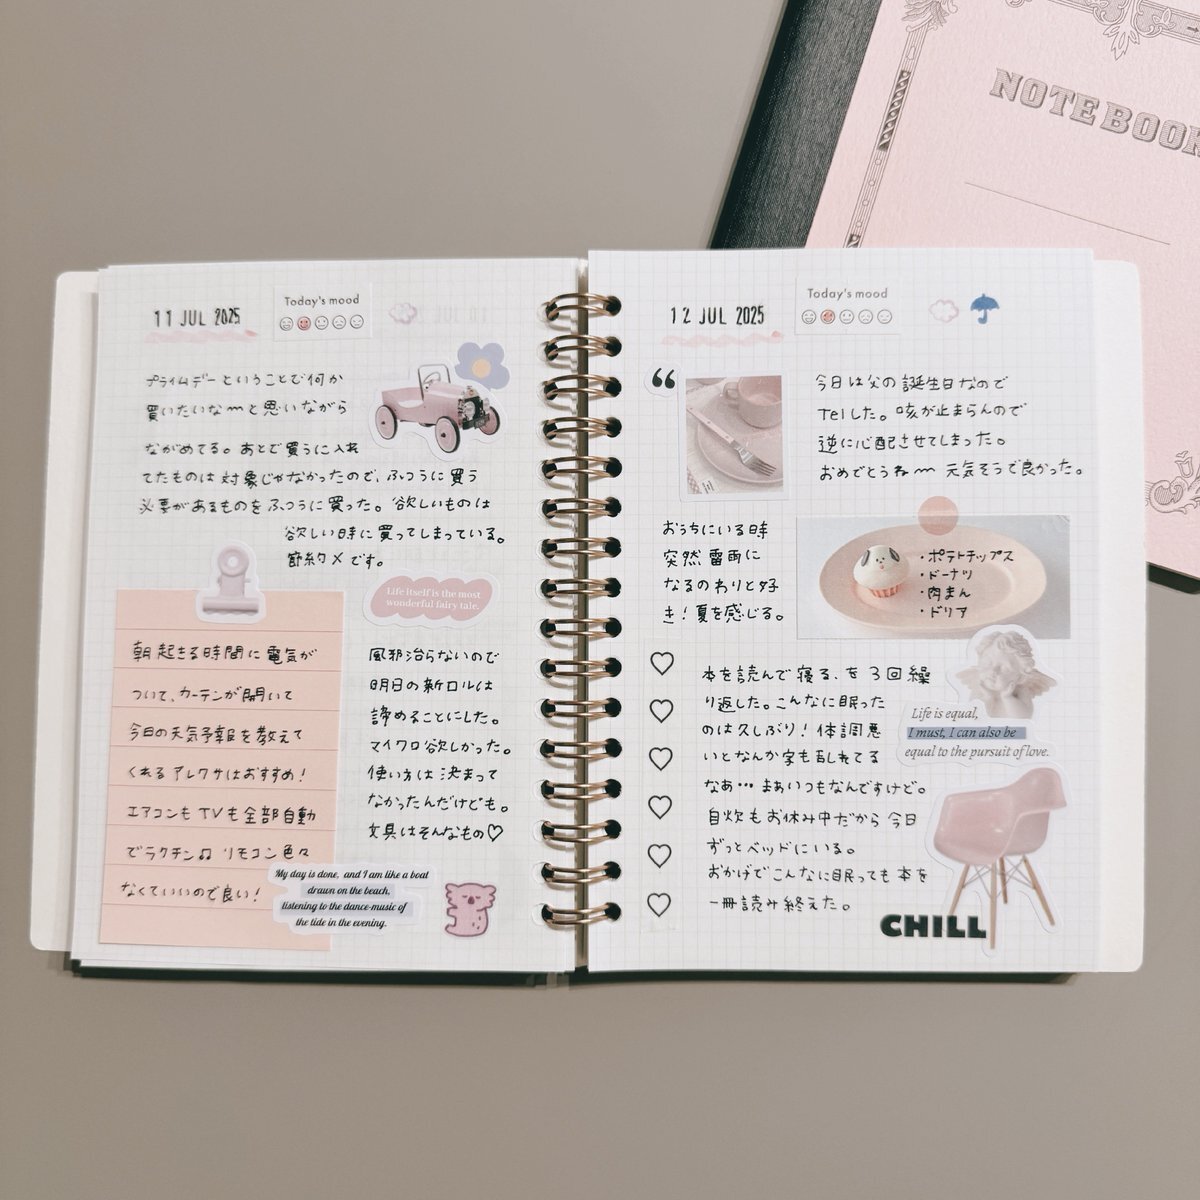 NOTEBOOK
11 JUL 2025
Today's mood
プライムデーということで何か
買いたいな〜〜と思いながら
ながめてる。あとで買うに入れ
てたものは対象じゃなかったので、ふつうに買う
必要があるものをふつうに買った。欲しいものは
欲しい時に買ってしまっている。
節約〆です。
朝起きる時間に電気が
ついて、カーテンが開いて
今日の天気予報を教えて
くれるアレクサはおすすめ!
エアコンもTVも全部自動
でラクチン♫ リモコン色々
なくていいので良い!
Life itself is the most
wonderful fairy tale.
風邪治らないので
明日の新ロルは
諦めることにした。
マイクロ欲しかった。
使い方は決まって
なかったんだけども。
文具はそんなもの♡
My day is done, and I am like a boat
drawn on the beach,
listening to the dance-music of
the tide in the evening.
12 JUL 2025
Today's mood
今日は父の誕生日なので
Telした。咳が止まらんので
逆に心配させてしまった。
おめでとうね〜〜 元気そうで良かった。
おうちにいる時
突然雷雨に
なるのわりと好
き!夏を感じる。
・ポテトチップス
・ドーナツ
・肉まん
・ドリア
本を読んで寝る、を3回繰
り返した。こんなに眠った
のは久しぶり!体調悪
いとなんか家も乱れてる
なあ…まあいつもなんですけど。
自炊もお休み中だから今日
ずっとベッドにいる。
おかげでこんなに眠っても本を
一冊読み終えた。
Life is equal,
I must, I can also be
equal to the pursuit of love.
CHILL